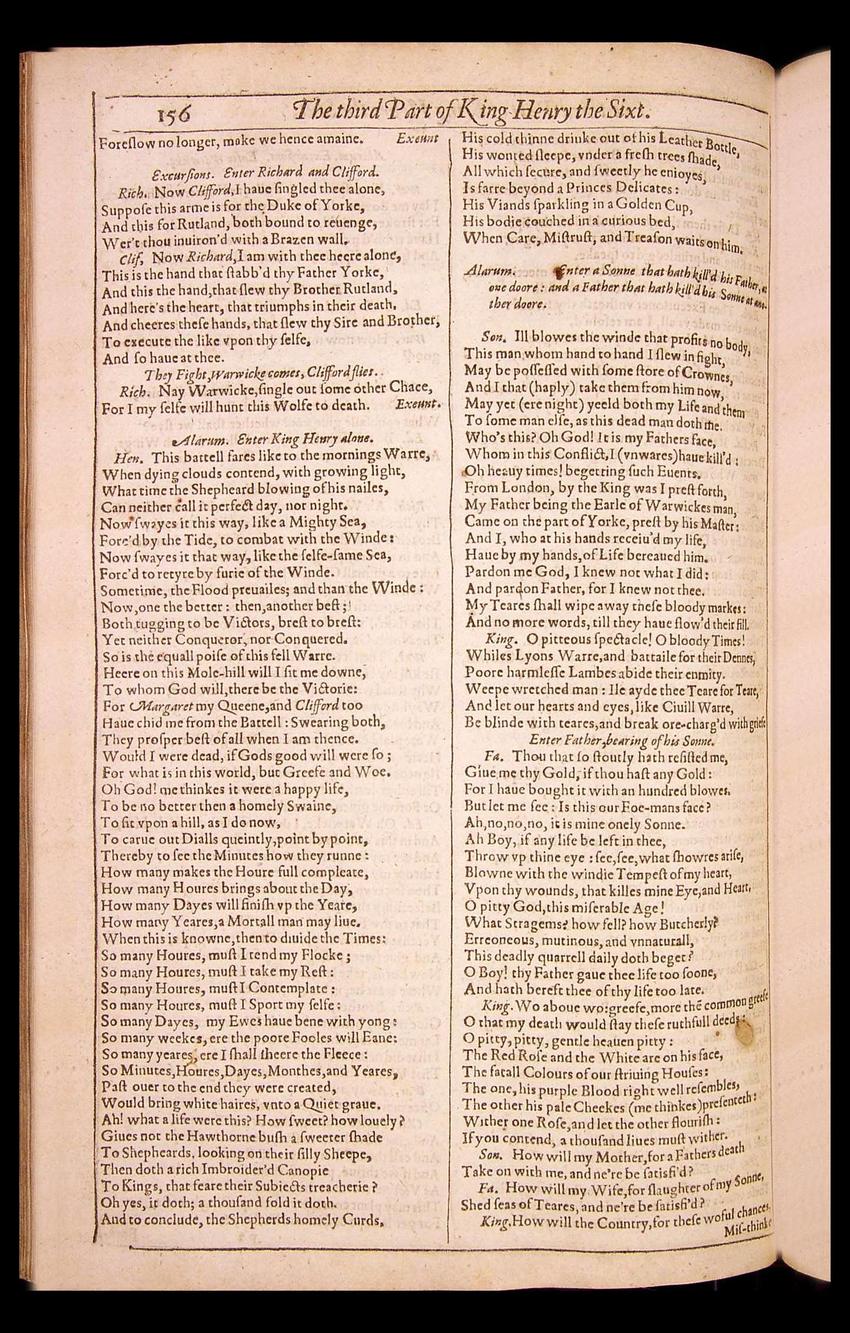 156 The third Part of King Henry the Sixt.
Foreſlow no longer, make we hence amaine. Exeunt
Excurſions. Enter Richard and Clifford.
Rich. Now Clifford, I haue ſingled thee alone,
Suppoſe this arme is for the Duke of Yorke,
And this for Rutland, both bound to reuenge,
Wer't thou inuiron'd with a Brazen wall.
Clif. Now Richard, I am with thee heere alone,
This is the hand that ſtabb'd thy Father Yorke,
And this the hand, that ſlew thy Brother Rutland,
And here's the heart, that triumphs in their death,
And cheeres theſe hands, that ſlew thy Sire and Brother,
To execute the like vpon thy ſelfe,
And ſo haue at thee.
They Fight, Warwicke comes, Clifford flies.
Rich. Nay Warwicke, ſingle out ſome other Chace,
For I my ſelfe will hunt this Wolfe to death. Exeunt.
Alarum. Enter King Henry alone.
Hen. This battell fares like to the mornings Warre,
When dying clouds contend, with growing light,
What time the Shepheard blowing of his nailes,
Can neither call it perfect day, nor night.
Now ſwayes it this way, like a Mighty Sea,
Forc'd by the Tide, to combat with the Winde:
Now ſwayes it that way, like the ſelfe-ſame Sea,
Forc'd to retyre by furie of the Winde.
Sometime, the Flood preuailes; and than the Winde:
Now, one the better: then, another beſt;
Both tugging to be Victors, breſt to breſt:
Yet neither Conqueror, nor Conquered.
So is the equall poiſe of this fell Warre.
Heere on this Mole-hill will I ſit me downe,
To whom God will, there be the Victorie:
For Margaret my Queene, and Clifford too
Haue chid me from the Battell: Swearing both,
They proſper beſt of all when I am thence.
Would I were dead, if Gods good will were ſo;
For what is in this world, but Greefe and Woe.
Oh God! me thinkes it were a happy life,
To be no better then a homely Swaine,
To ſit vpon a hill, as I do now,
To carue out Dialls queintly, point by point,
Thereby to ſee the Minutes how they runne:
How many makes the Houre full compleate,
How many Houres brings about the Day,
How many Dayes will finiſh vp the Yeare,
How many Yeares, a Mortall man may liue.
When this is knowne, then to diuide the Times:
So many Houres, muſt I tend my Flocke;
So many Houres, muſt I take my Reſt:
So many Houres, muſt I Contemplate:
So many Houres, muſt I Sport my ſelfe:
So many Dayes, my Ewes haue bene with yong:
So many weekes, ere the poore Fooles will Eane:
So many yeares, ere I ſhall ſheere the Fleece:
So Minutes, Houres, Dayes, Monthes, and Yeares,
Paſt ouer to the end they were created,
Would bring white haires, vnto a Quiet graue.
Ah! what a life were this? How ſweet? how louely?
Giues not the Hawthorne buſh a ſweeter ſhade
To Shepheards, looking on their ſilly Sheepe,
Then doth a rich Imbroider'd Canopie
To Kings, that feare their Subiects treacherie?
Oh yes, it doth; a thouſand fold it doth.
And to conclude, the Shepherds homely Curds,
His cold thinne drinke out of his Leather Bottle,
His wonted ſleepe, vnder a freſh trees ſhade,
All which ſecure, and ſweetly he enioyes,
Is farre beyond a Princes Delicates:
His Viands ſparkling in a Golden Cup,
His bodie couched in a curious bed,
When Care, Miſtruſt, and Treaſon waits on him.
Alarum. Enter a Sonne that hath kill'd his Father, at
one doore: and a Father that hath kill'd his Sonne at ano-
ther doore.
Son. Ill blowes the winde that profits no body,
This man whom hand to hand I ſlew in fight,
May be poſſeſſed with ſome ſtore of Crownes,
And I that (haply) take them from him now,
May yet (ere night) yeeld both my Life and them
To ſome man elſe, as this dead man doth me.
Who's this? Oh God! It is my Fathers face,
Whom in this Conflict, I (vnwares) haue kill'd:
Oh heauy times! begetting ſuch Euents.
From London, by the King was I preſt forth,
My Father being the Earle of Warwickes man,
Came on the part of Yorke, preſt by his Maſter:
And I, who at his hands receiu'd my life,
Haue by my hands, of Life bereaued him.
Pardon me God, I knew not what I did:
And pardon Father, for I knew not thee.
My Teares ſhall wipe away theſe bloody markes:
And no more words, till they haue flow'd their fill.
King. O pitteous ſpectacle! O bloody Times!
Whiles Lyons Warre, and battaile for their Dennes,
Poore harmleſſe Lambes abide their enmity.
Weepe wretched man: Ile ayde thee Teare for Teare,
And let our hearts and eyes, like Ciuill Warre,
Be blinde with teares, and break ore-charg'd with griefe
Enter Father, bearing of his Sonne.
Fa. Thou that ſo ſtoutly hath reſiſted me,
Giue me thy Gold, if thou haſt any Gold:
For I haue bought it with an hundred blowes.
But let me ſee: Is this our Foe-mans face?
Ah, no, no, no, it is mine onely Sonne.
Ah Boy, if any life be left in thee,
Throw vp thine eye: ſee, ſee, what ſhowres ariſe,
Blowne with the windie Tempeſt of my heart,
Vpon thy wounds, that killes mine Eye, and Heart.
O pitty God, this miſerable Age!
What Stragems? how fell? how Butcherly?
Erreoneous, mutinous, and vnnaturall,
This deadly quarrell daily doth beget?
O Boy! thy Father gaue thee life too ſoone,
And hath bereft thee of thy life too late.
King. Wo aboue wo: greefe, more thẽ common greefe
O that my death would ſtay theſe ruthfull deeds:
O pitty, pitty, gentle heauen pitty:
The Red Roſe and the White are on his face,
The fatall Colours of our ſtriuing Houſes:
The one, his purple Blood right well reſembles,
The other his pale Cheekes (me thinkes) preſenteth:
Wither one Roſe, and let the other flouriſh:
If you contend, a thouſand liues muſt wither.
Son. How will my Mother, for a Fathers death
Take on with me, and ne're be ſatisfi'd?
Fa. How will my Wife, for ſlaughter of my Sonne,
Shed ſeas of Teares, and ne're be ſatisfi'd?
King. How will the Country, for theſe woful chances,
Miſ-thinke